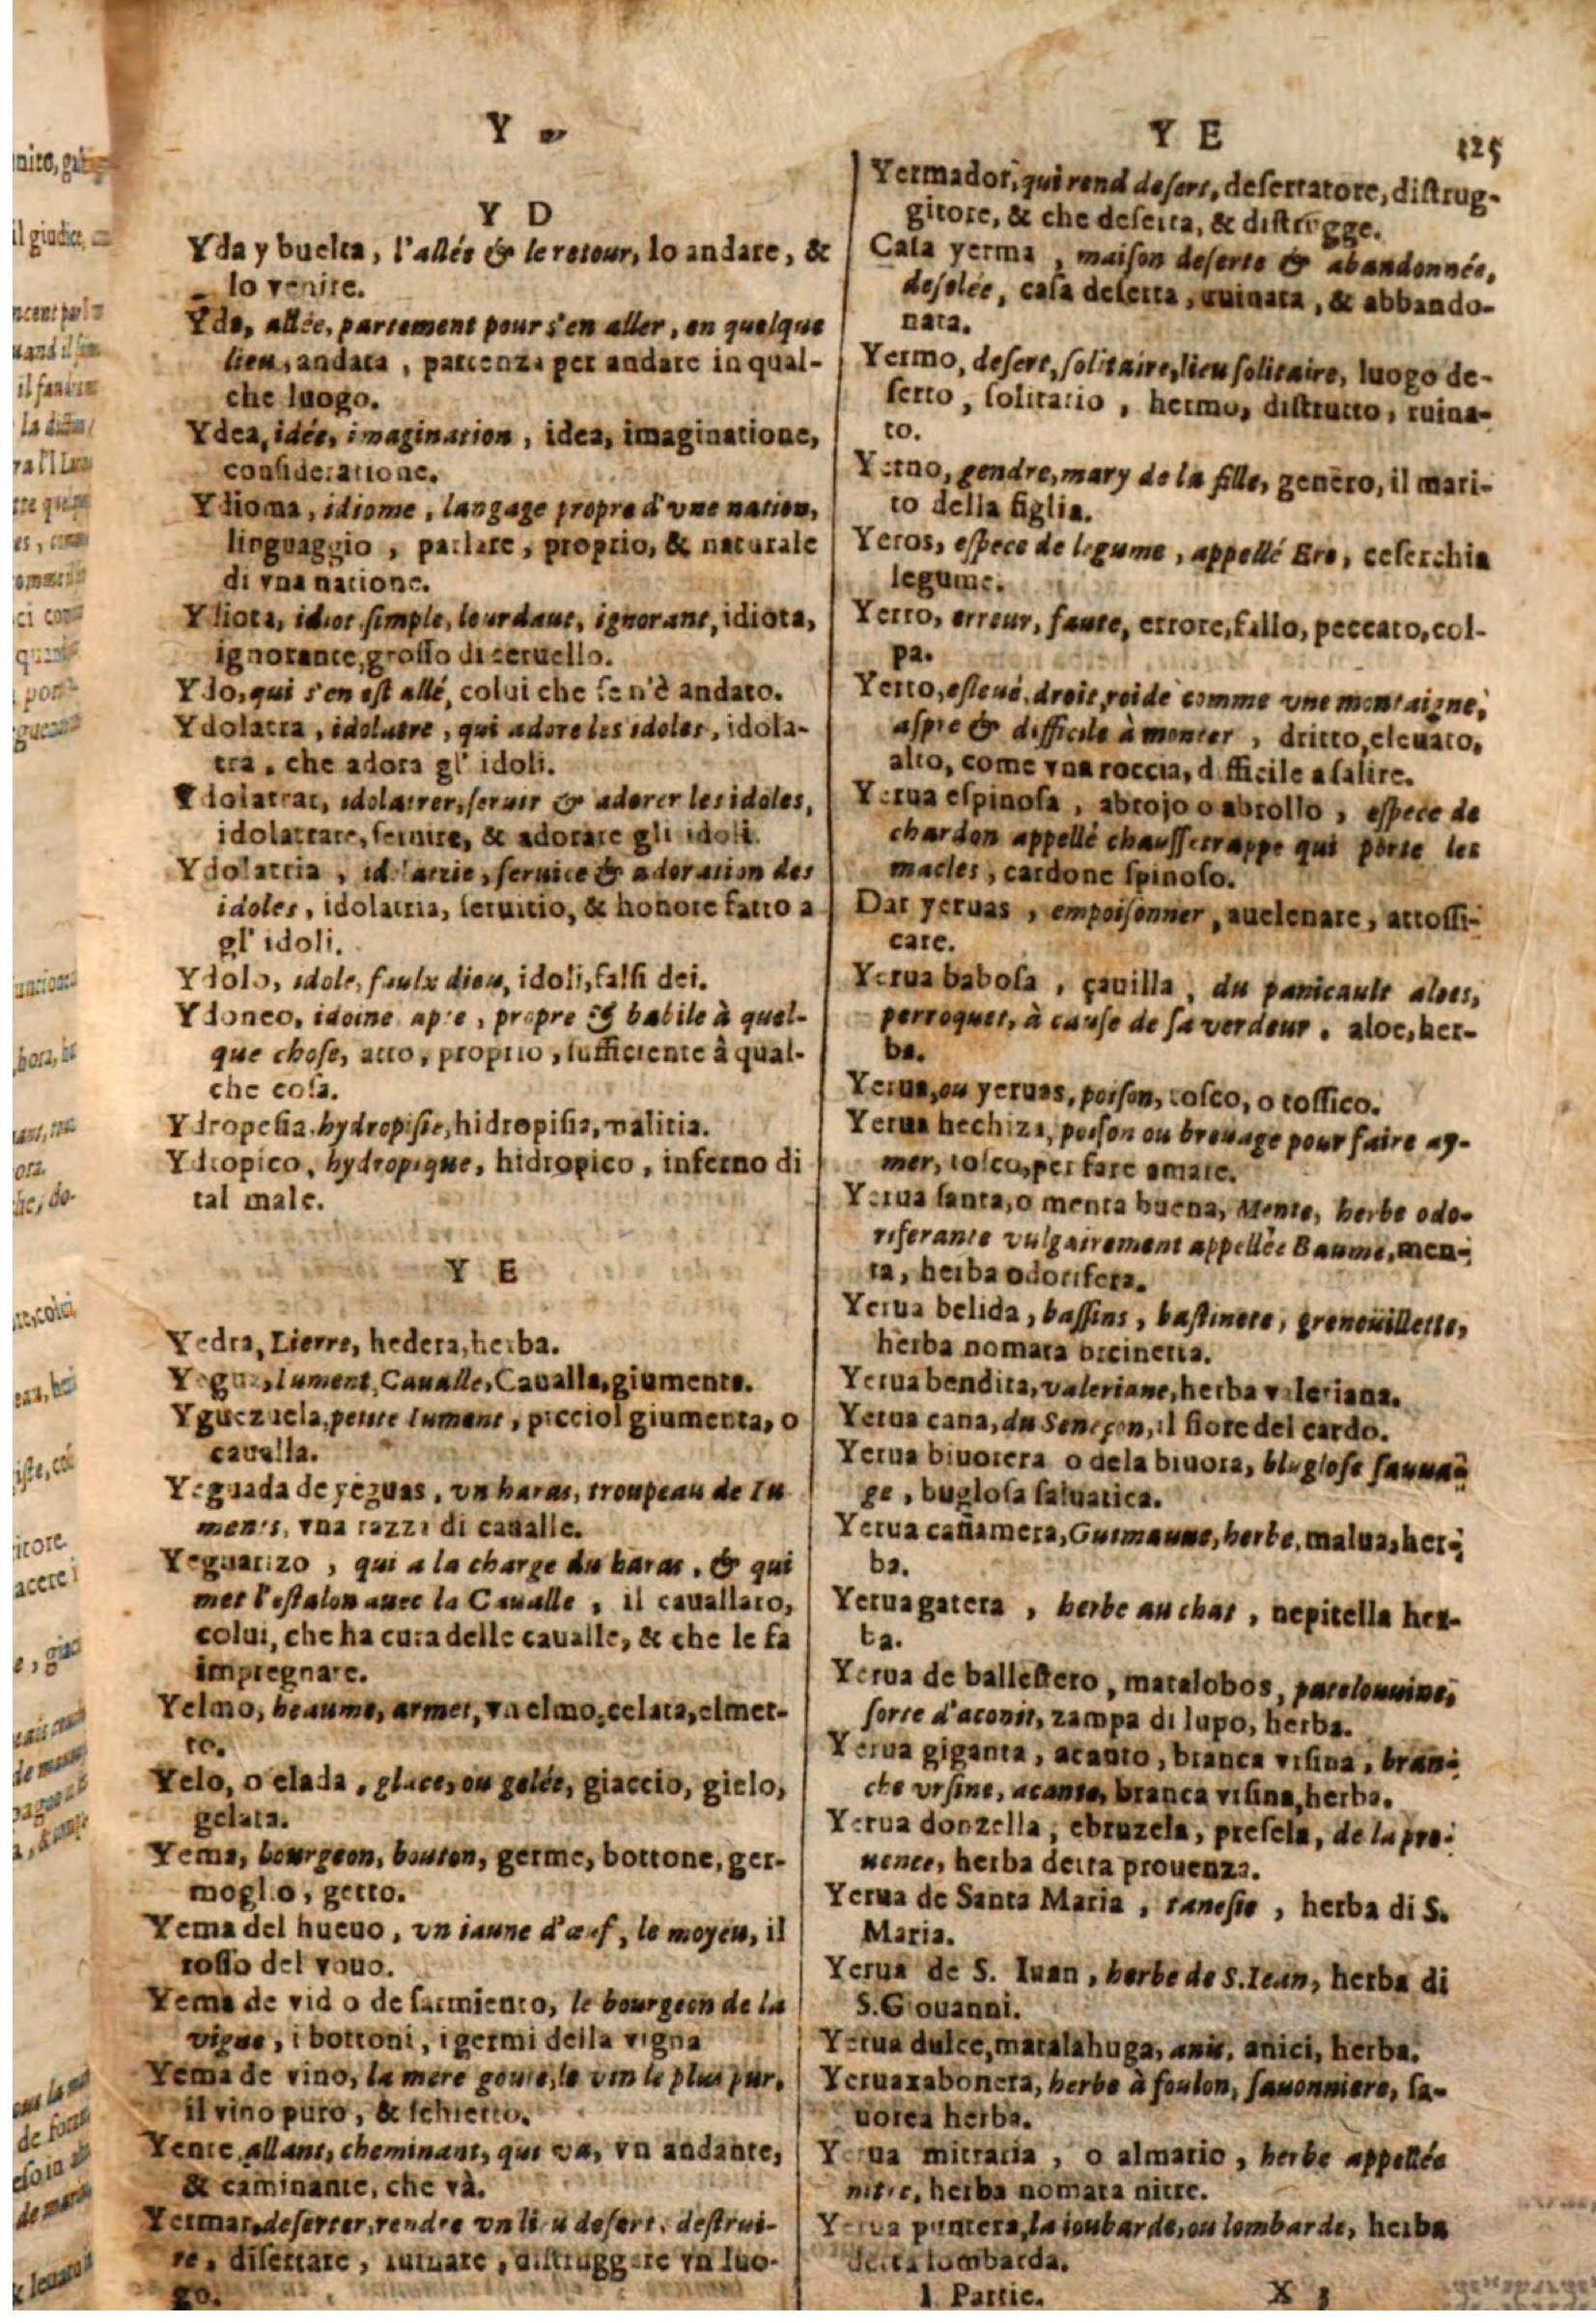 Y
Y D
Yda y buelta, l'allée & le retour, lo andare, &
lo venire.
Yda, allée, partement pour s'en aller, en quelque
lieu, andata, partenza per andare in qual-
che luogo.
Ydea, idée, imagination, idea, imaginatione,
consideratione.
Ydioma, idiome, langage propre d'vne nation,
linguaggio, parlare, proprio, & naturale
di vna natione.
Ydiota, idiot simple, lourdaut, ignorant, idiota,
ignorante, grosso di ceruello.
Ydo, qui s'en est allé, colui che se n'è andato.
Ydolatra, idolatre, qui adore les idoles, idola-
tra, che adora gl' idoli.
Ydolatrar, idolatrer, seruir & adorer les idoles,
idolatrare, seruire, & adorare gli idoli.
Ydolatria, idolatrie, seruice & adoration des
idoles, idolatria, seruitio, & honore fatto a
gl' idoli.
Ydolo, idole, faulx dieu, idoli, falsi dei.
Ydoneo, idoine apte, propre & habile à quel-
que chose, atto, proprio, sufficiente à qual-
che cosa.
Ydropesia, hydropisie, hidropisia, malitia.
Ydropico, hydropique, hidropico, infermo di
tal male.
Y E
Yedra, Lierre, hedera, herba.
Yegua, Iument, Caualle, Caualla, giumenta.
Yguezuela, petite Iument, picciol giumenta, o
caualla.
Yeguada de yeguas, vn haras, troupeau de Iu
mens, vna razza di caualle.
Yeguarizo, qui a la charge du haras, & qui
met l'estalon auec la Caualle, il cauallaro,
colui, che ha cura delle caualle, & che le fa
impregnare.
Yelmo, heaume, armet, vn elmo, celata, elmet-
to.
Yelo, o elada, glace, ou gelée, giaccio, gielo,
gelata.
Yema, bourgeon, bouton, germe, bottone, ger-
moglio, getto.
Yema del hueuo, vn iaune d'œuf, le moyeu, il
rosso del vouo.
Yema de vid o de sarmiento, le bourgeon de la
vigne, i bottoni, i germi della vigna
Yema de vino, la mere goute, le vin le plus pur,
il vino puro, & schietto.
Yente, allant, cheminant, qui va, vn andante,
& caminante, che và.
Yermar, deserter, rendre vn lieu desert, destrui-
re, disertare, ruinare, distruggere vn luo-
go.
Y E
125
Yermador, qui rend desert, desertatore, distrug-
gitore, & che deserta, & distrugge.
Casa yerma, maison deserte & abandonnée,
desolée, casa deserta, ruinata, & abbando-
nata.
Yermo, desert, solitaire, lieu solitaire, luogo de-
serto, solitario, hermo, distrutto, ruina-
to.
Yerno, gendre, mary de la fille, genero, il mari-
to della figlia.
Yeros, espece de legume, appellé Ers, ceserchia
legume.
Yerro, erreur, faute, errore, fallo, peccato, col-
pa.
Yerto, esleué, droit, roide comme vne montaigne,
aspre & difficile à monter, dritto, eleuato,
alto, come vna roccia, difficile a salire.
Yerua espinosa, abrojo o abrollo, espece de
chardon appellé chausserrappe qui porte les
macles, cardone spinoso.
Dar yeruas, empoisonner, auelenare, attossi-
care.
Yerua babosa, çauilla, du panicault aloes,
perroquet, à cause de sa verdeur, aloe, her-
ba.
Yerua, ou yeruas, poison, tosco, o tossico.
Yerua hechiza, poison ou breuage pour faire ay-
mer, tosco, per fare amare.
Yerua santa, o menta buena, Mente, herbe odo-
riferante vulgairement appellée Baume, men-
ta, herba odorifera.
Yerua belida, bassins, bastinets, grenoüillette,
herba nomata orcinetta.
Yerua bendita, valeriane, herba valeriana.
Yerua cana, du Seneçon, il fiore del cardo.
Yerua biuorera o dela biuora, buglose sauua-
ge, buglosa saluatica.
Yerua cañamera, Guimauue, herbe, malua, her-
ba.
Yerua gatera, herbe au chat, nepitella her-
ba.
Yerua de ballestero, matalobos, patelouuine,
sorte d'aconit, zampa di lupo, herba.
Yerua giganta, acanto, branca vrsina, bran-
che vrsine, acante, branca vrsina, herba.
Yerua donzella, ebruzela, presela, de la pro-
uence, herba detta prouenza.
Yerua de Santa Maria, tanesie, herba di S.
Maria.
Yerua de S. Iuan, herbe de S. Iean, herba di
S. Giouanni.
Yerua dulce, matalahuga, anis, anici, herba.
Yeruaxabonera, herbe à foulon, sauonniere, sa-
uorea herba.
Yerua mitraria, o almario, herbe appellée
nitre, herba nomata nitre.
Yerua puntera, la ioubarde, ou lombarde, herba
detta lombarda.
I Partie.
X